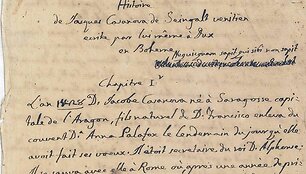 Histoire
de Jacques Casanova de Seingalt venitien
ecrite par lui même à Dux
en Boheme
Nequicquam sapit qui sibi non sapit
Chapitre I.r
L'an 1428 D. Jacobe Casanova né à Saragosse capi-
tale de l'Aragon, fils naturel de D. Francisco enleva du
couvent D. Anna Palafox le lendemain du jour qu'elle
avoit fait ses voeux. Il étoit secretaire du roi D. Alphonse.
Il se sauva avec elle à Rome où après une année de pri-